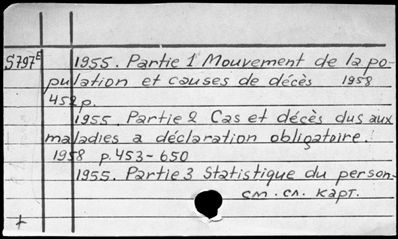 S797E 1955. Partie 1 Mouvement de la po-
pulation et causes de décès 1958
452 p.
1955. Partie 2 Cas et décès dus aux
maladies a déclaration obligatoire.
1958 p. 453-650
1955. Partie 3 Statistique du person-
см. сл. карт.
+